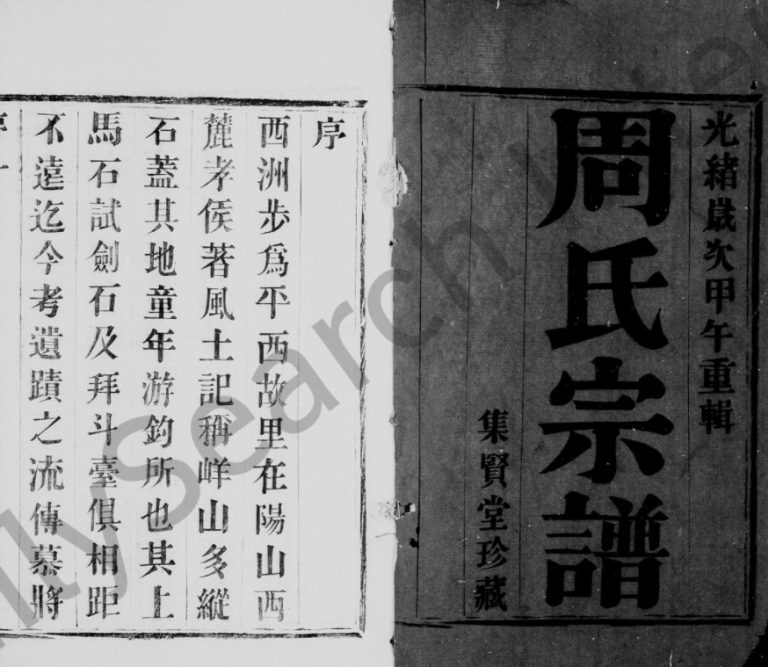 光緒歲次甲午重輯
周氏宗譜
集賢堂珍藏
序
西洲步為平西故里在陽山西
麓孝侯著風土記稱峄山多縱
石蓋其地童年游鈞所也其上
馬石試劍石及拜斗臺俱相距
不遠迄今考遺蹟之流傳慕將